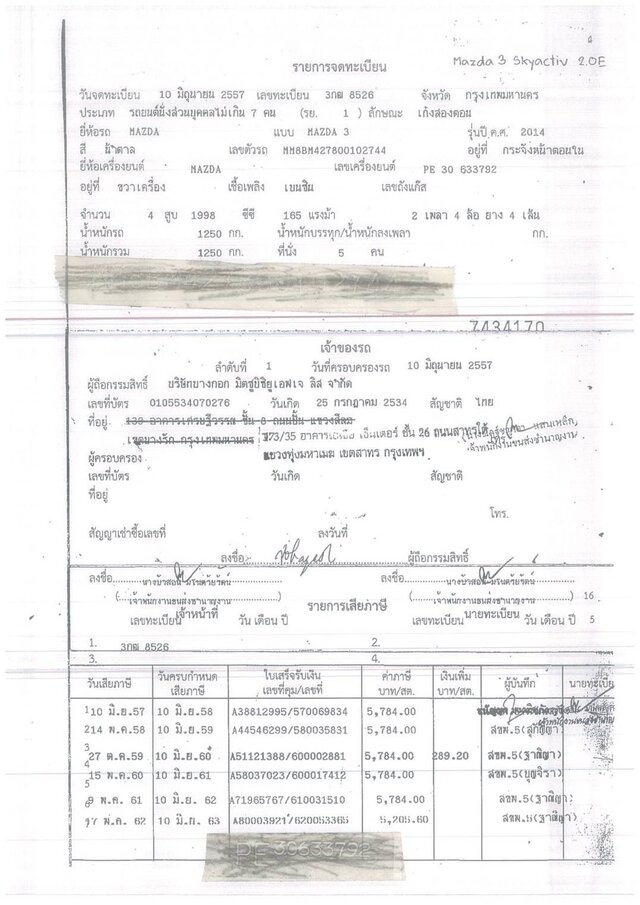 Mazda 3 Skyactiv 2.0E
รายการจดทะเบียน
วันจดทะเบียน 10 มิถุนายน 2557 เลขทะเบียน 3กฒ 8526 จังหวัด กรุงเทพมหานคร
ประเภท รถยนต์นั่งส่วนบุคคลไม่เกิน 7 คน (รย. 1 ) ลักษณะ เก๋งสองตอน
ยี่ห้อรถ MAZDA แบบ MAZDA 3 รุ่นปี ค.ศ. 2014
สี น้ำตาล เลขตัวรถ MM8BM427800102744 อยู่ที่ กระจังหน้าตอนใน
ยี่ห้อเครื่องยนต์ MAZDA เลขเครื่องยนต์ PE 30 633792
อยู่ที่ ขวาเครื่อง เชื้อเพลิง เบนซิน เลขถังแก๊ส
จำนวน 4 สูบ 1998 ซีซี 165 แรงม้า 2 เพลา 4 ล้อ ยาง 4 เส้น
น้ำหนักรถ 1250 กก. น้ำหนักบรรทุก/น้ำหนักลงเพลา กก.
น้ำหนักรวม 1250 กก. ที่นั่ง 5 คน
7434170
เจ้าของรถ
ลำดับที่ 1 วันที่ครอบครองรถ 10 มิถุนายน 2557
ผู้ถือกรรมสิทธิ์ บริษัทบางกอก มิตซูบิชิยูเอฟเจ ลิส จำกัด
เลขที่บัตร 0105534070276 วันเกิด 25 กรกฎาคม 2534 สัญชาติ ไทย
ที่อยู่ 139 อาคารเศรษฐีวรรณ ชั้น 8 ถนนปั้น แขวงสีลม
เขตบางรัก กรุงเทพมหานคร 173/35 อาคารเอเชีย เซ็นเตอร์ ชั้น 26 ถนนสาทรใต้
เจ้าพนักงานขนส่งชำนาญงาน
ผู้ครอบครอง แขวงทุ่งมหาเมฆ เขตสาทร กรุงเทพฯ
เลขที่บัตร วันเกิด สัญชาติ
ที่อยู่
โทร.
สัญญาเช่าซื้อเลขที่ ลงวันที่
ลงชื่อ ผู้ถือกรรมสิทธิ์
ลงชื่อ ลงชื่อ
(เจ้าพนักงานขนส่งชำนาญงาน) (เจ้าพนักงานขนส่งชำนาญงาน) 16
เจ้าหน้าที่ รายการเสียภาษี นายทะเบียน
เลขทะเบียน วัน เดือน ปี เลขทะเบียน วัน เดือน ปี 5
1. 3กฒ 8526 2.
3. 4.
วันเสียภาษี วันครบกำหนดเสียภาษี ใบเสร็จรับเงิน เลขที่คุม/เลขที่ ค่าภาษี บาท/สต. เงินเพิ่ม บาท/สต. ผู้บันทึก นายทะเบีย
1 10 มิ.ย.57 10 มิ.ย.58 A38812995/570069834 5,784.00
2 14 พ.ค.58 10 มิ.ย.59 A44546299/580035831 5,784.00 สขพ.5
3 27 ต.ค.59 10 มิ.ย.60 A51121388/600002881 5,784.00 289.20 สขพ.5(ฐาณิญา)
4 15 พ.ค.60 10 มิ.ย.61 A58037023/600017412 5,784.00 สขพ.5(บุญจิรา)
5 9 พ.ค. 61 10 มิ.ย. 62 A71965767/610031510 5,784.00 สขพ.5(ฐาณิญา)
17 พ.ค. 62 10 มิ.ย. 63 A80003921/620053365 5,205.60 สขพ.5(ฐาณิญา)
PE 30633792